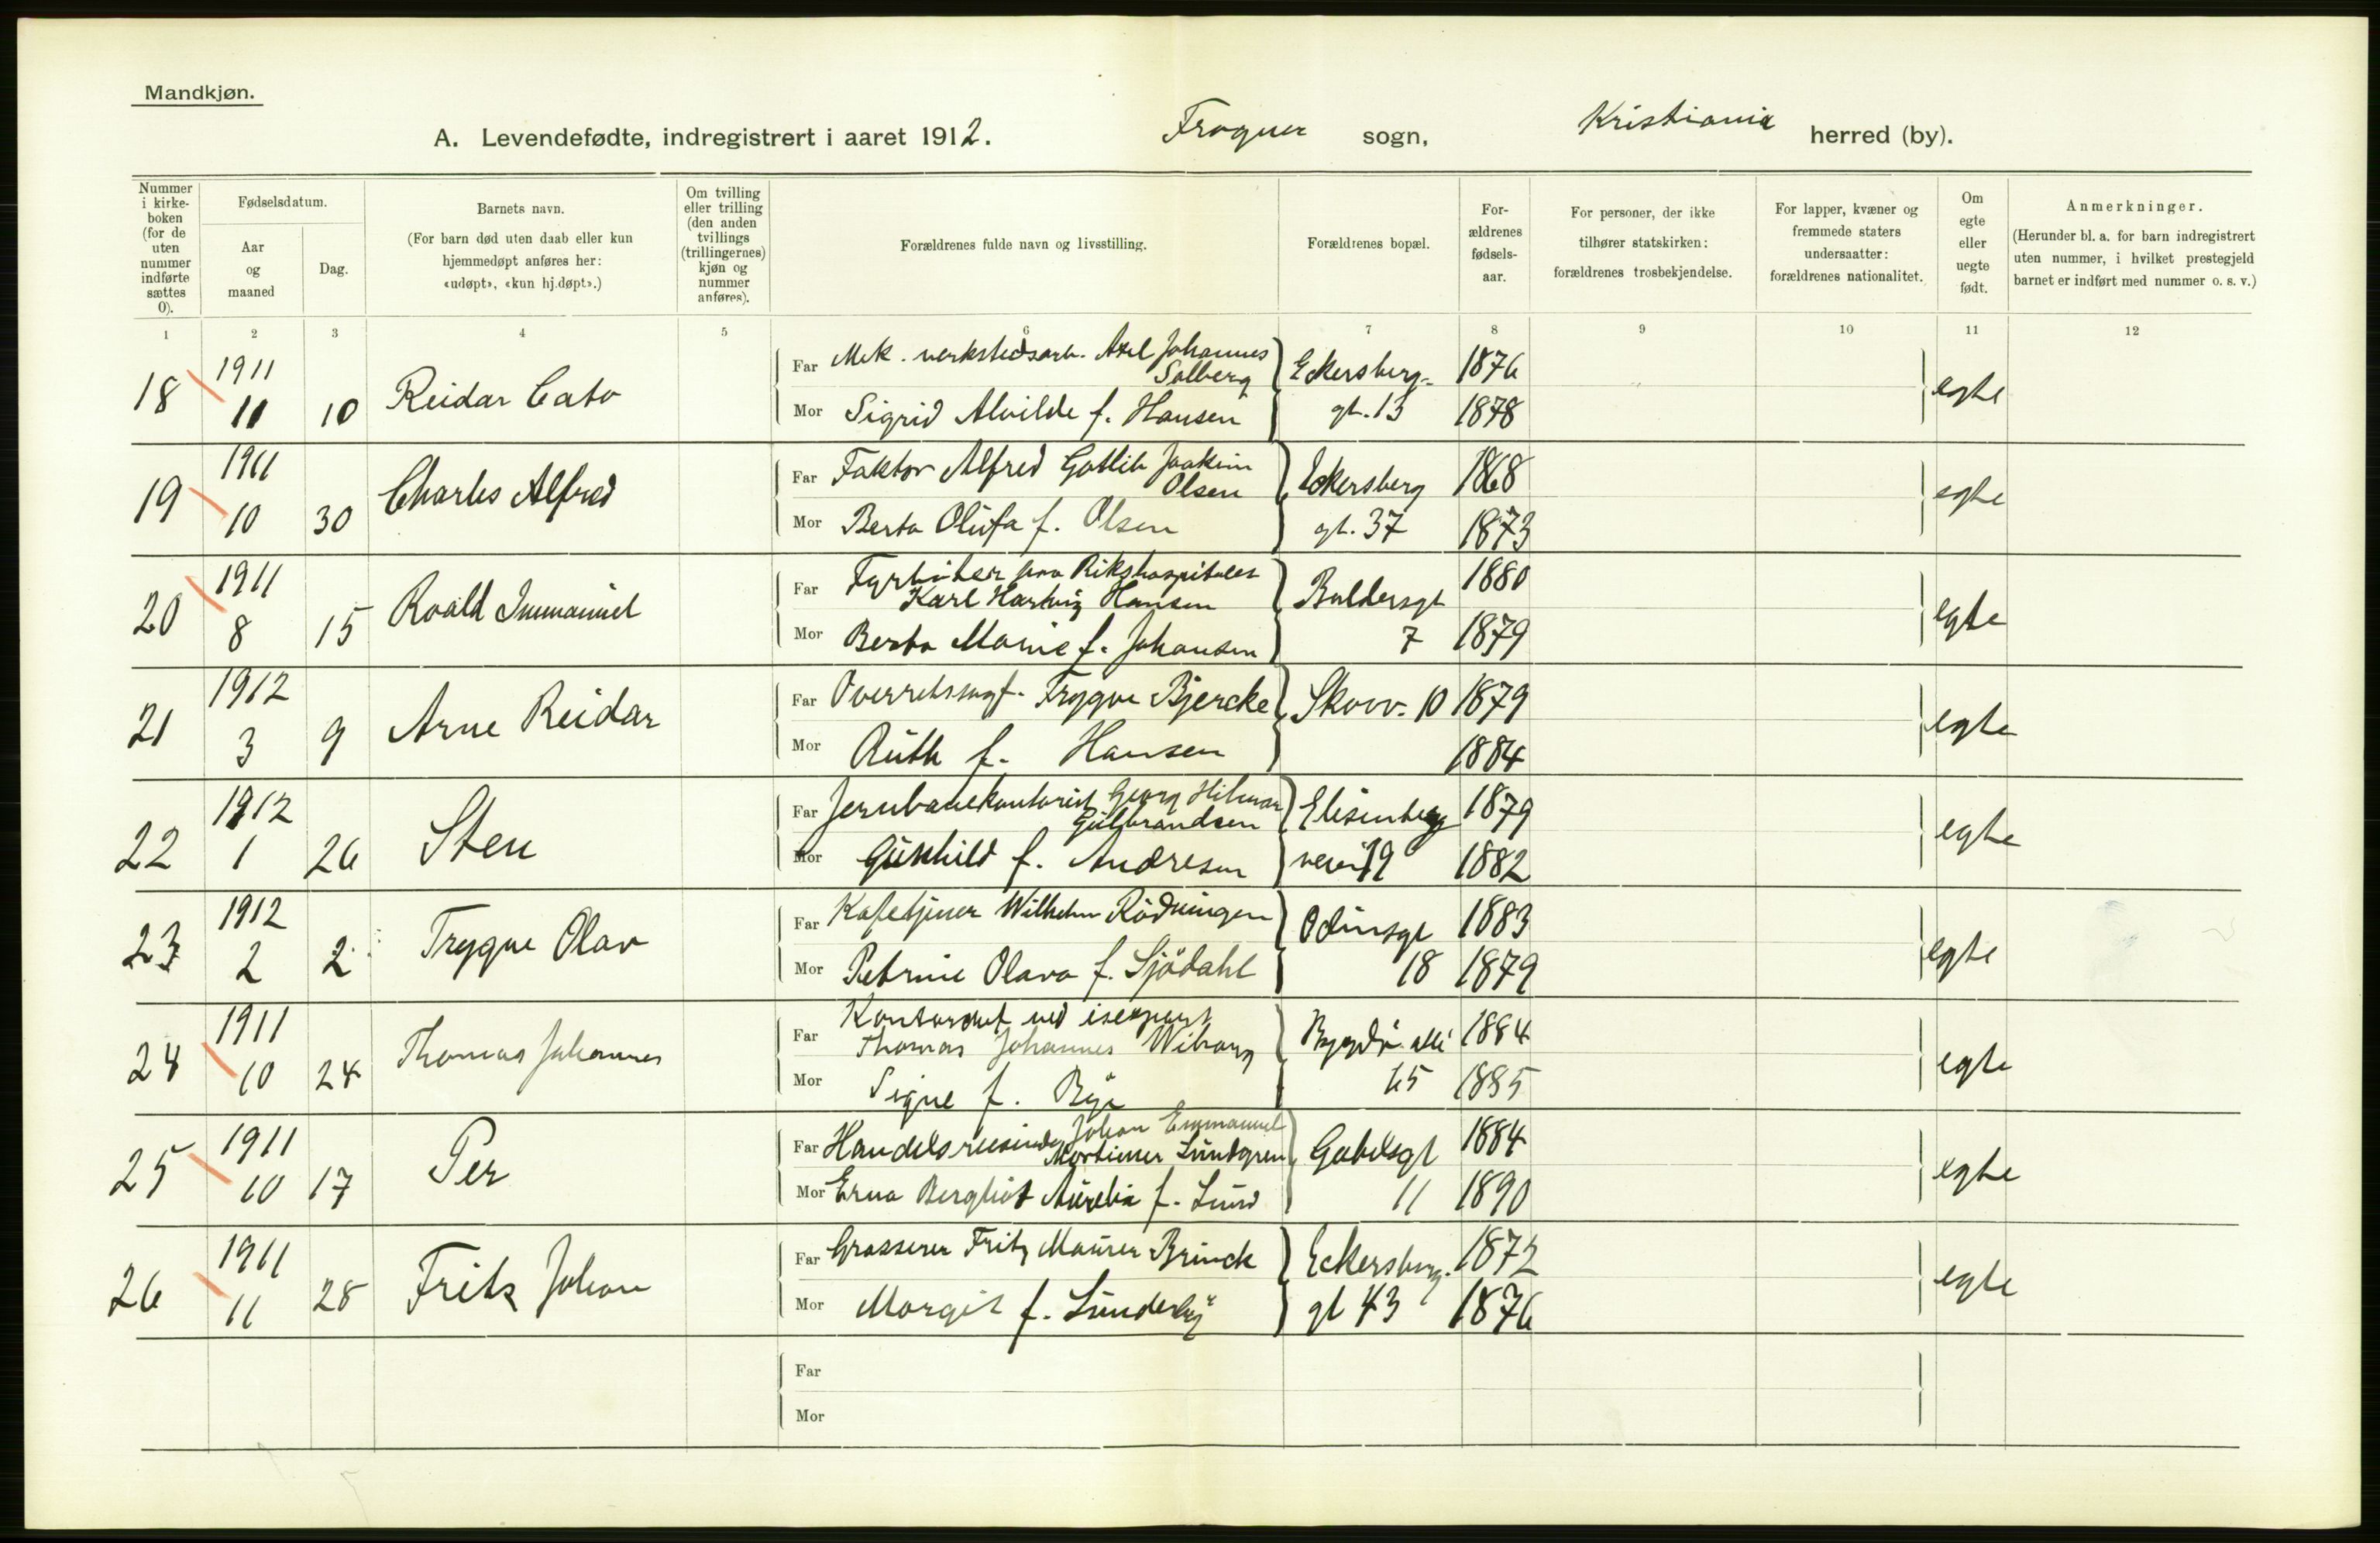 Mandkjøn.
A. Levendefødte, indregistrert i aaret 1912. Frogner sogn, Kristiania herred (by).
Nummer i kirkeboken (for de uten nummer indførte sættes 0).
Fødselsdatum.
Aar og maaned
Dag.
Barnets navn.
(For barn død uten daab eller kun hjemmedøpt anføres her: «udøpt», «kun hj.døpt».)
Om tvilling eller trilling (den anden tvillings (trillingernes) kjøn og nummer anføres).
Forældrenes fulde navn og livsstilling.
Forældrenes bopæl.
Forældrenes fødselsaar.
For personer, der ikke tilhører statskirken: forældrenes trosbekjendelse.
For lapper, kvæner og fremmede staters undersaatter: forældrenes nationalitet.
Om egte eller uegte født.
Anmerkninger.
(Herunder bl. a. for barn indregistrert uten nummer, i hvilket prestegjeld barnet er indført med nummer o. s. v.)
1 2 3 4 5 6 7 8 9 10 11 12
18 1911 11 10 Reidar Cato
Far Mek. verkstedsarb. Axel Johannes Solberg Eckersberg- 1876
Mor Sigrid Alvilde f. Hansen gt. 13 1878 egte
19 1911 10 30 Charles Alfred
Far Faktor Alfred Gottlib Joakim Olsen Eckersberg 1868
Mor Berta Olufa f. Olsen gt. 37 1873 egte
20 1911 8 15 Roald Immanuel
Far Fyrbøter paa Rikshospitalet Karl Hartvig Hansen Baldersgt 1880
Mor Berta Marie f. Johansen 7 1879 egte
21 1912 3 9 Arne Reidar
Far Overretssagf. Trygve Bjercke Skovv. 10 1879
Mor Ruth f. Hansen 1884 egte
22 1912 1 26 Sten
Far Jernbanekontorist Georg Hilmar Gulbrandsen Elisenberg 1879
Mor Gunhild f. Andresen veien 19 1882 egte
23 1912 2 2 Trygve Olav
Far Kafetjener Wilhelm Rödningen Odinsgt 1883
Mor Petrine Olava f. Sjödahl 18 1879 egte
24 1911 10 24 Thomas Johannes
Far ved isexport Thomas Johannes Wiborg Bygdö allé 1884
Mor Signe f. 65 1885 egte
25 1911 10 17 Per
Far Handelsreisende Johan Emmanuel Mortimer Lundgren Gabelsgt 1884
Mor Erna Bergliot Aurelia f. Lund 11 1890 egte
26 1911 11 28 Fritz Johan
Far Grosserer Fritz Maurer Brinck Eckersberg. 1872
Mor Margit f. Sunderbÿ gt 43 1876 egte
Far
Mor